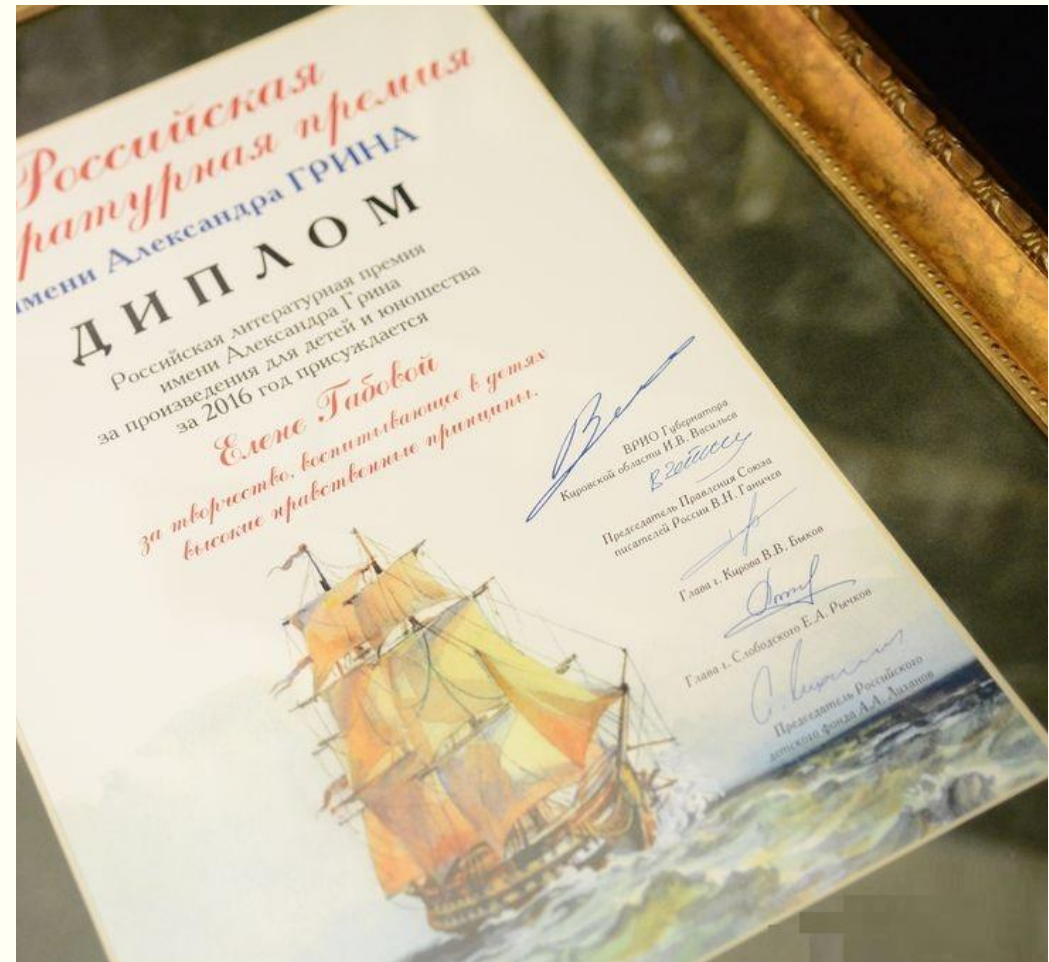 Российская
ратурная премия
имени Александра ГРИНА
ДИПЛОМ
Российская литературная премия
имени Александра Грина
за произведения для детей и юношества
за 2016 год присуждается
Елене Габовой
за творчество, воспитывающее в детях
высокие нравственные принципы.
ВРИО Губернатора
Кировской области И.В. Васильев
Председатель Правления Союза
писателей России В.Н. Ганичев
Глава г. Кирова В.В. Быков
Глава г. Слободского Е.А. Рычков
Председатель Российского
детского фонда А.А. Лиханов